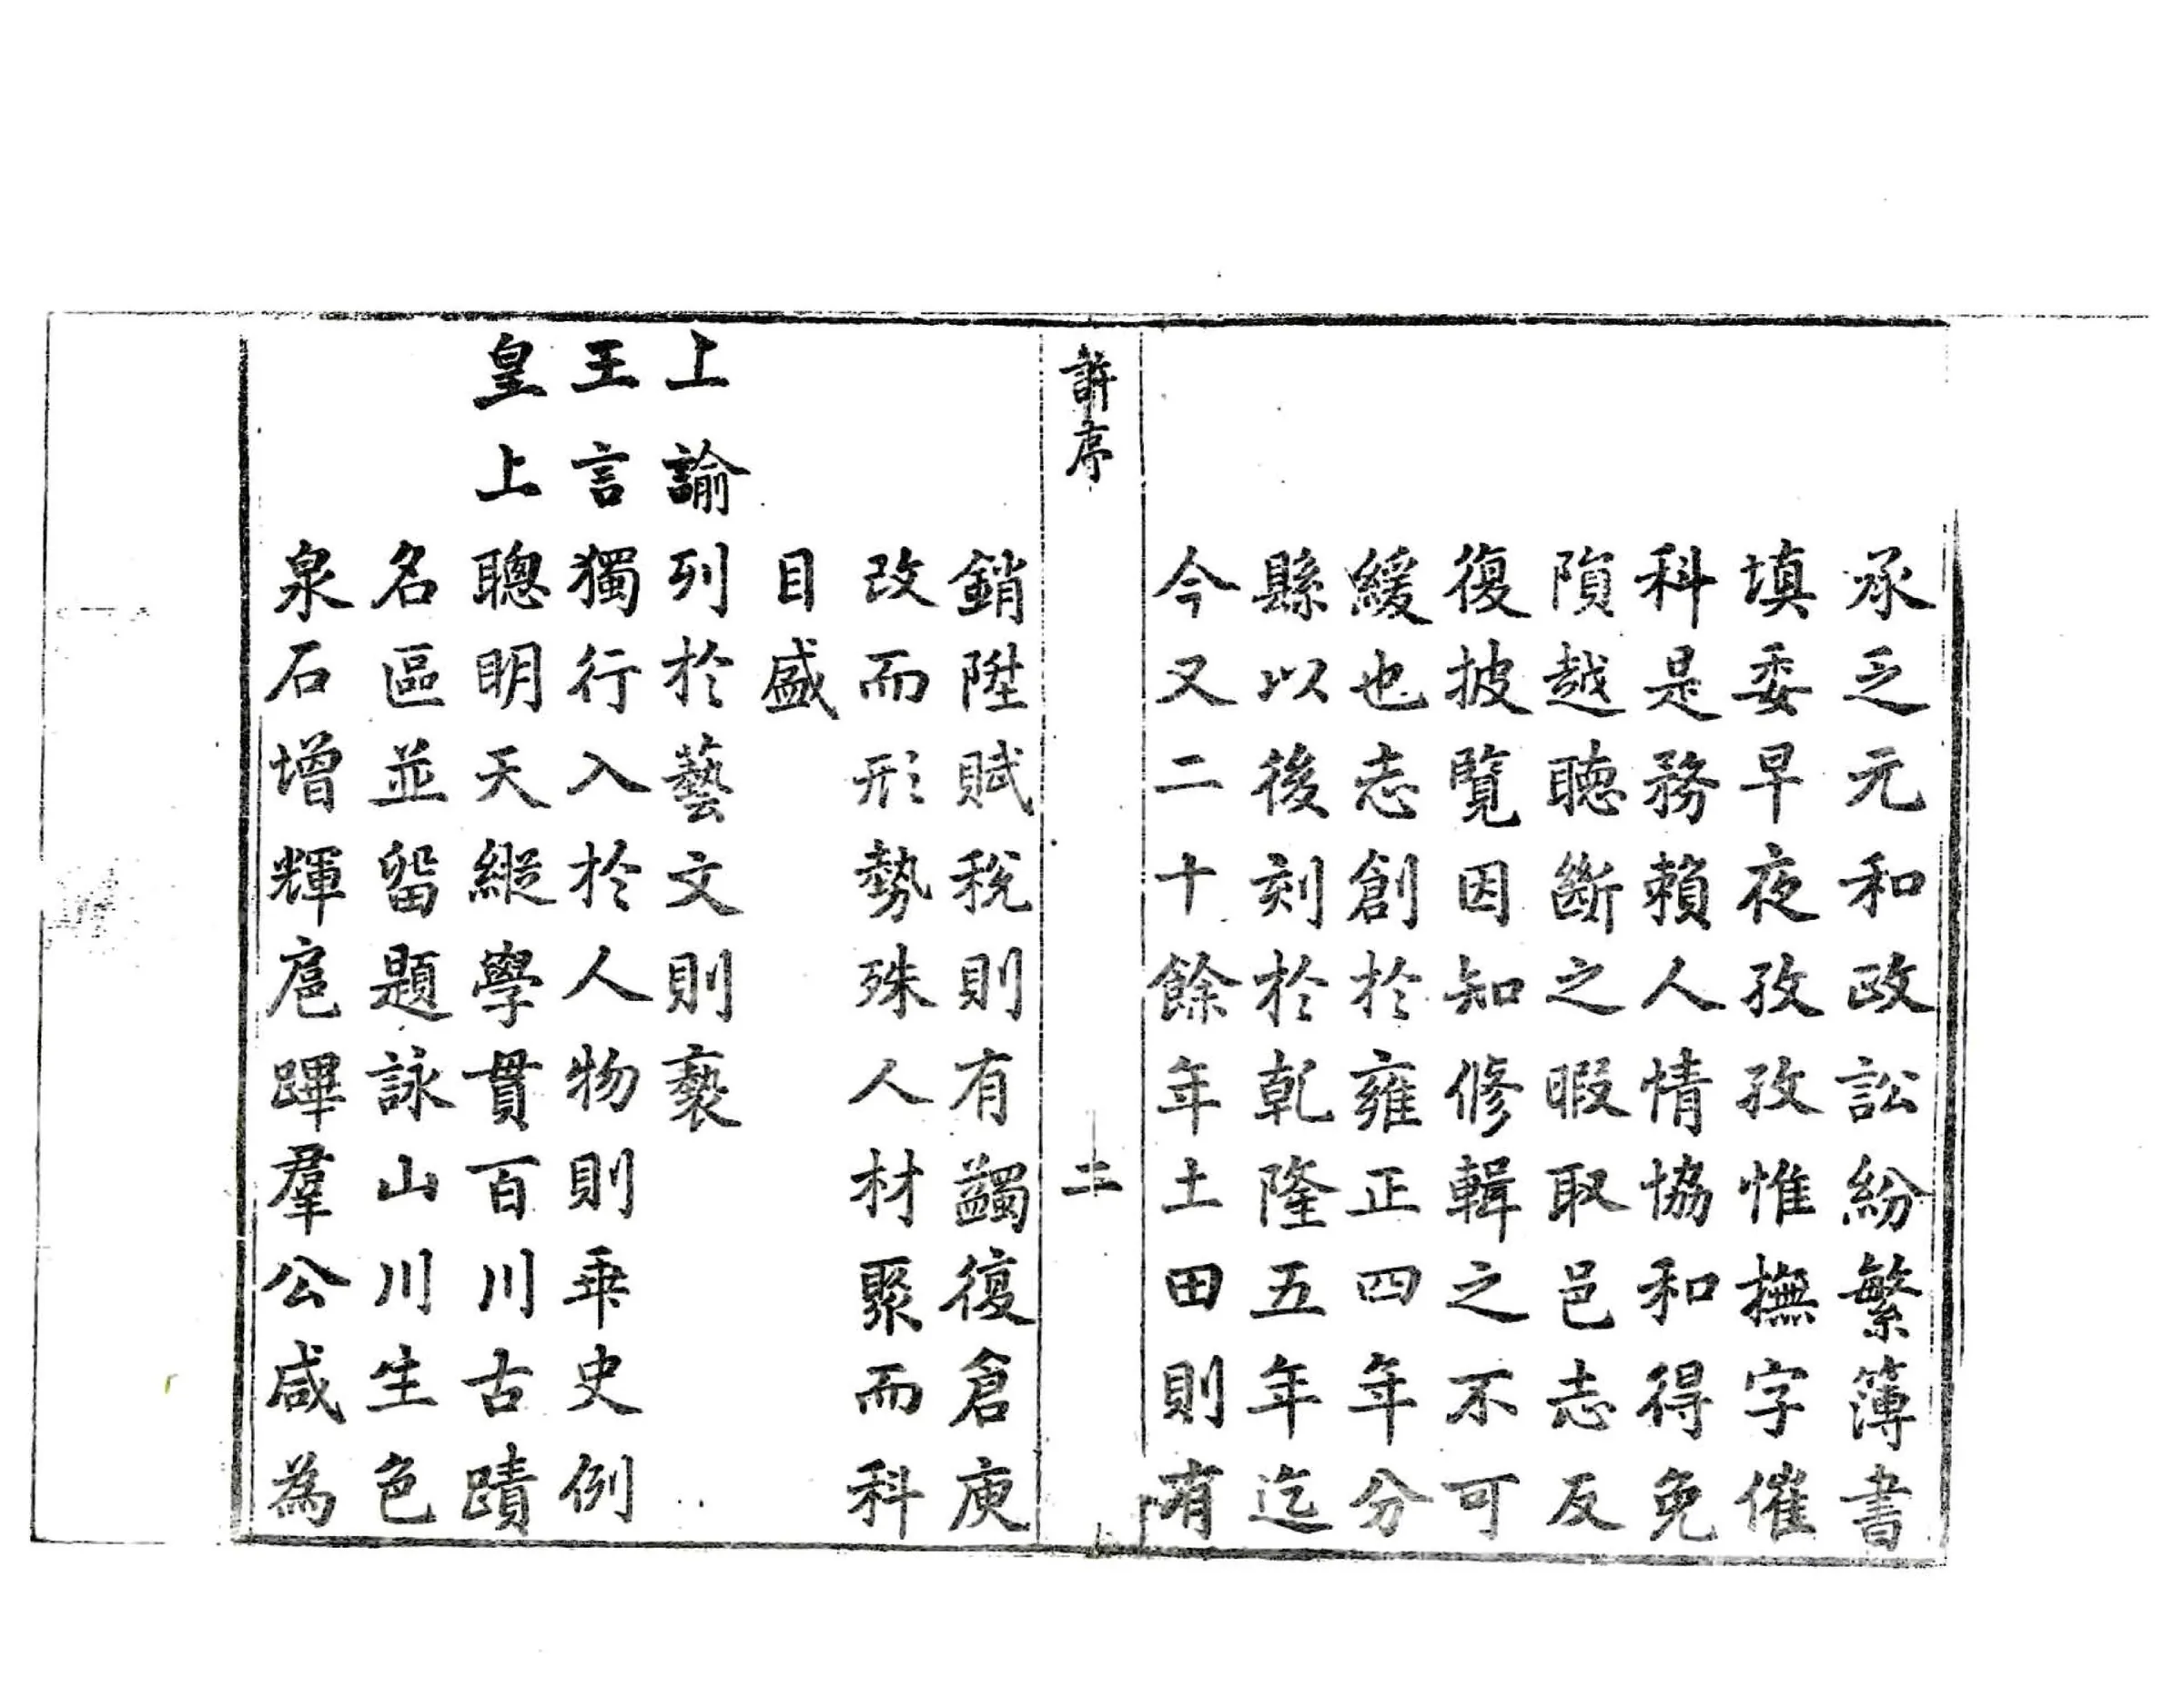 承乏元和政訟紛繁簿書
填委早夜孜孜惟撫字催
科是務賴人情協和得免
隕越聽斷之暇取邑志反
復披覽因知修輯之不可
緩也志創於雍正四年分
縣以後刻於乾隆五年迄
今又二十餘年土田則有
許序
二
銷陞賦稅則有蠲復倉庾
改而形勢殊人材聚而科
目盛
上諭列於藝文則褻
王言獨行入於人物則乖史例
皇上聰明天縱學貫百川古蹟
名區並留題詠山川生色
泉石增輝扈蹕羣公咸為